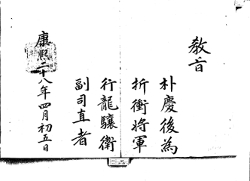 教旨
朴慶後為
折衝將軍
行龍驤衛
副司直者
康熙二十八年四月初五日